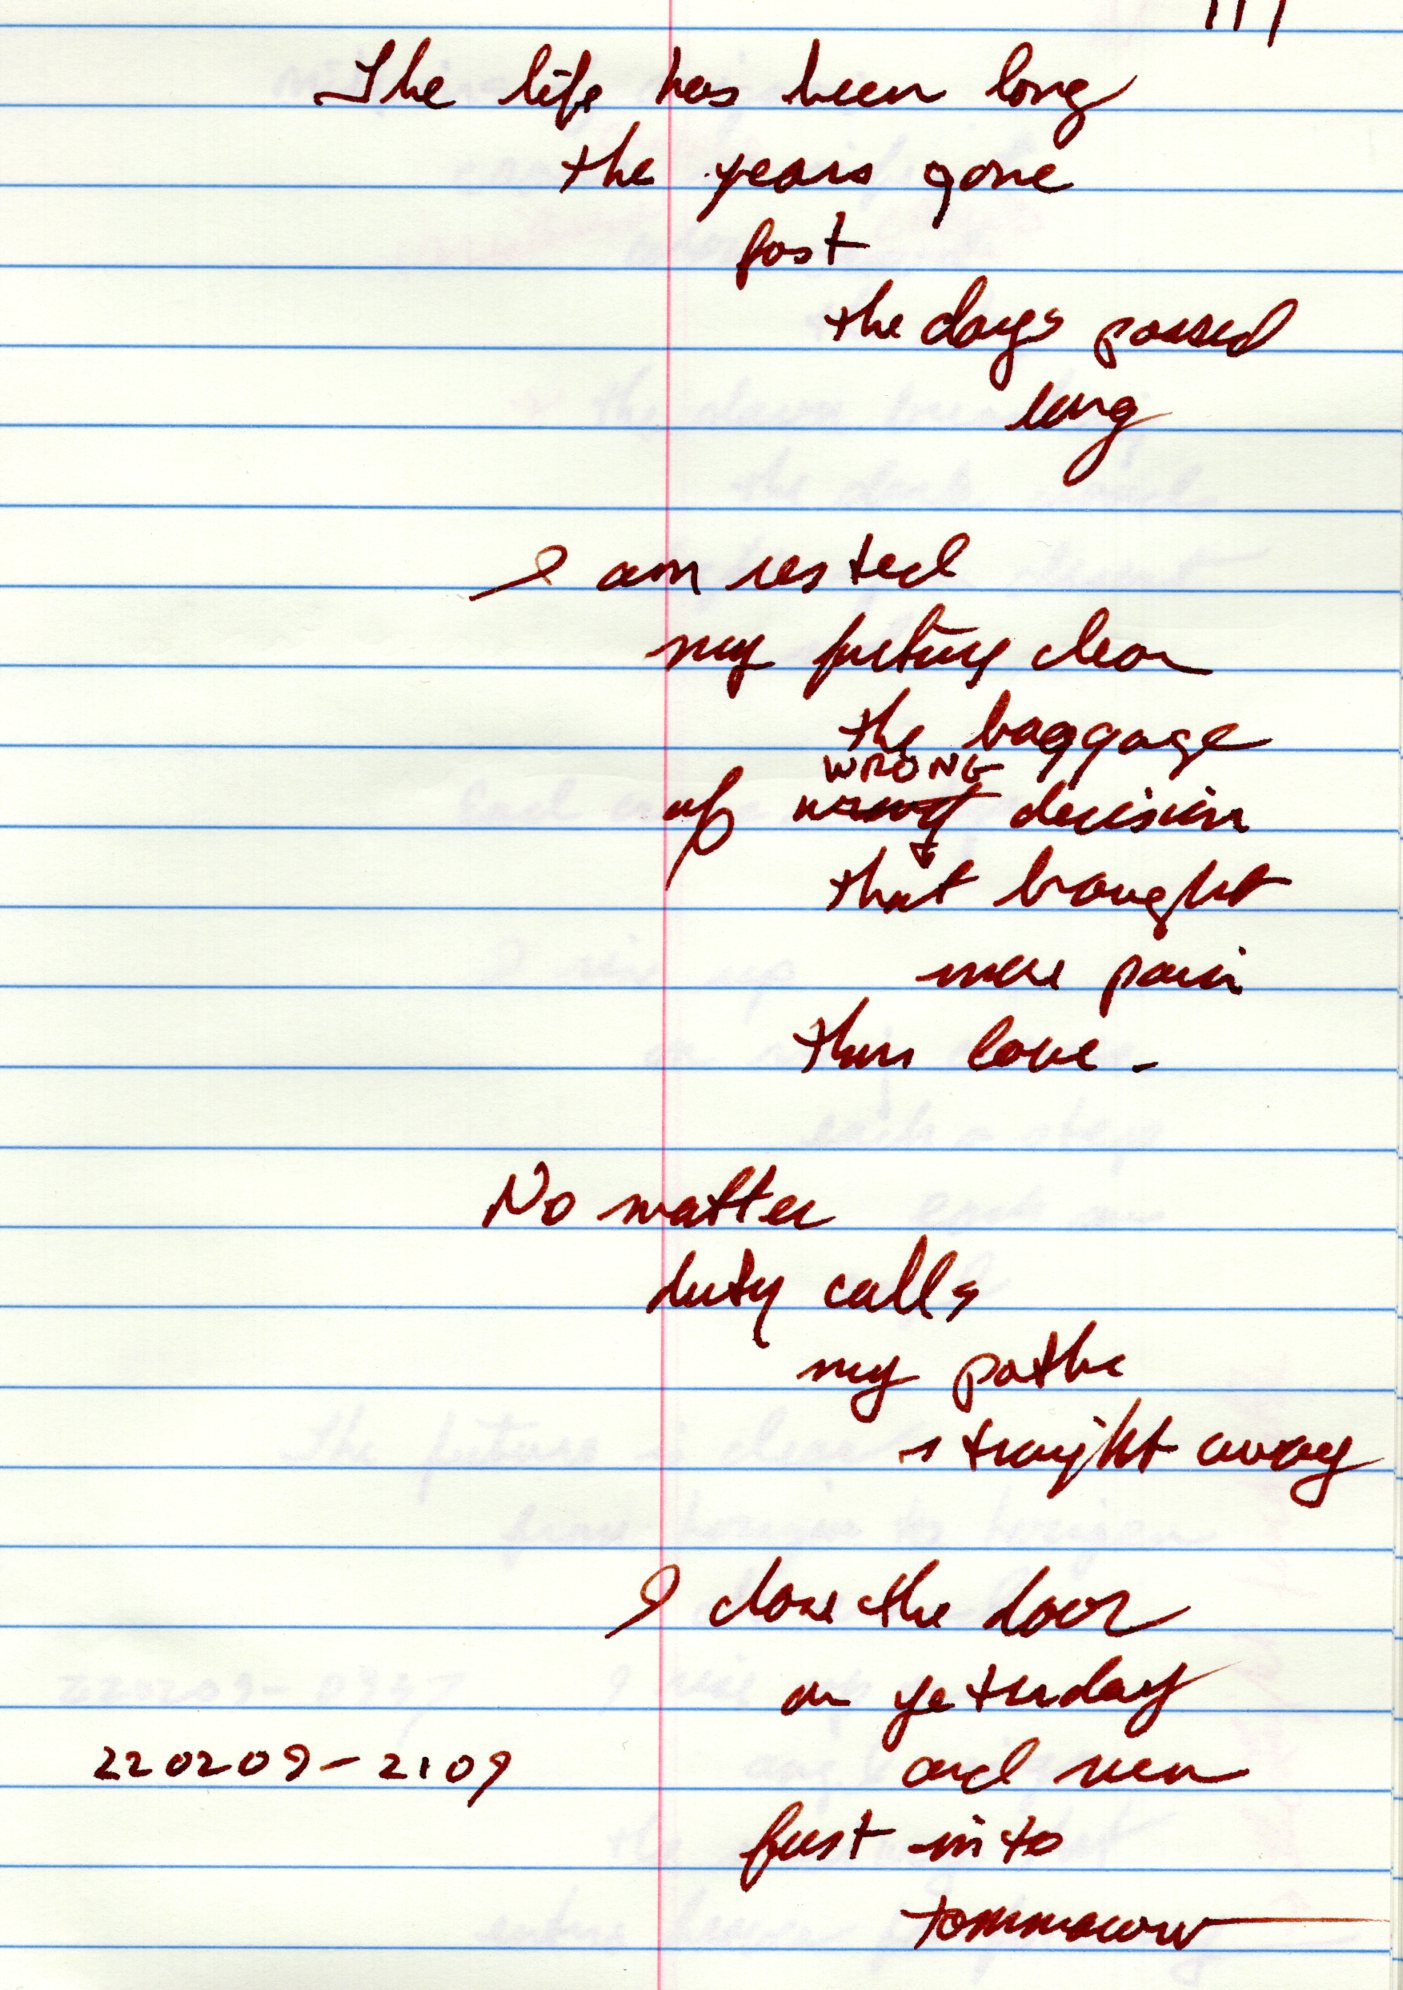 The life has been long
the years gone
fast
the days passed
long
I am rested
my future clear
the baggage
WRONG
of decision
that brought
more pain
than love -
No matter
duty calls
my pathe
straight away
I close the door
on yeturday
220209-2109
and run
fast into
tommorow